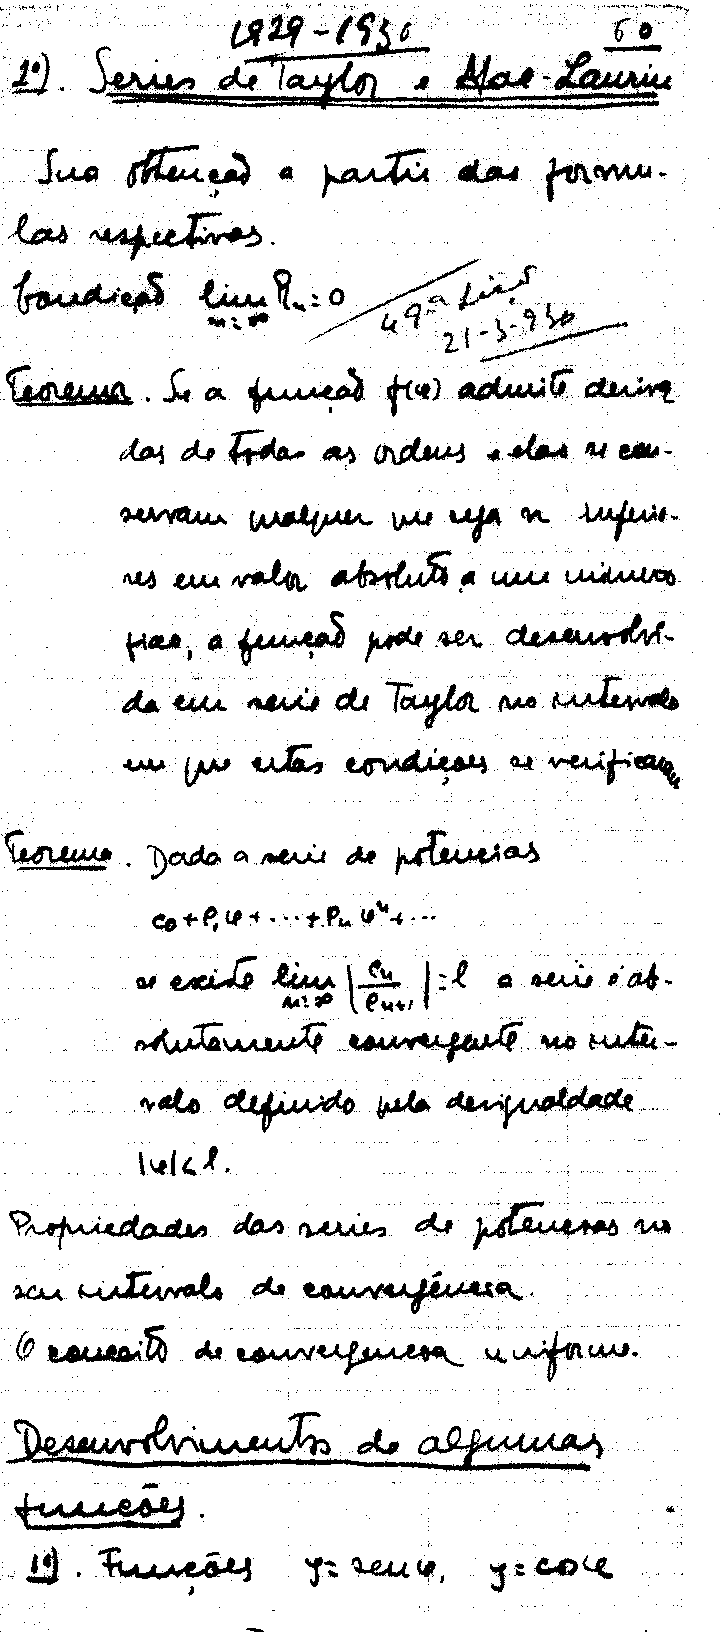 1929-1930 60
1º). Series de Taylor e Mac-Laurin
Sua obtenção a partir das formu-
las respectivas.
Condição lim Rn = 0
n=∞
49ª Lição
21-3-930
Teorema. Se a função f(x) admite deriva
das de todas as ordens e elas se con-
servam qualquer que seja n inferio-
res em valor absoluto a um número
fixo, a função pode ser desenvolvi-
da em serie de Taylor no intervalo
em que estas condições se verificam
Teorema. Dada a serie de potencias
c₀ + c₁x + ... + cₙxⁿ + ...
se existe lim |cₙ/cₙ₊₁| = l a serie é ab-
n=∞
solutamente convergente no inter-
valo definido pela desigualdade
|x| < l.
Propriedades das series de potencias no
seu intervalo de convergência.
O conceito de convergencia uniforme.
Desenvolvimentos de algumas
funções.
1º). Funções y = sen x, y = cos x